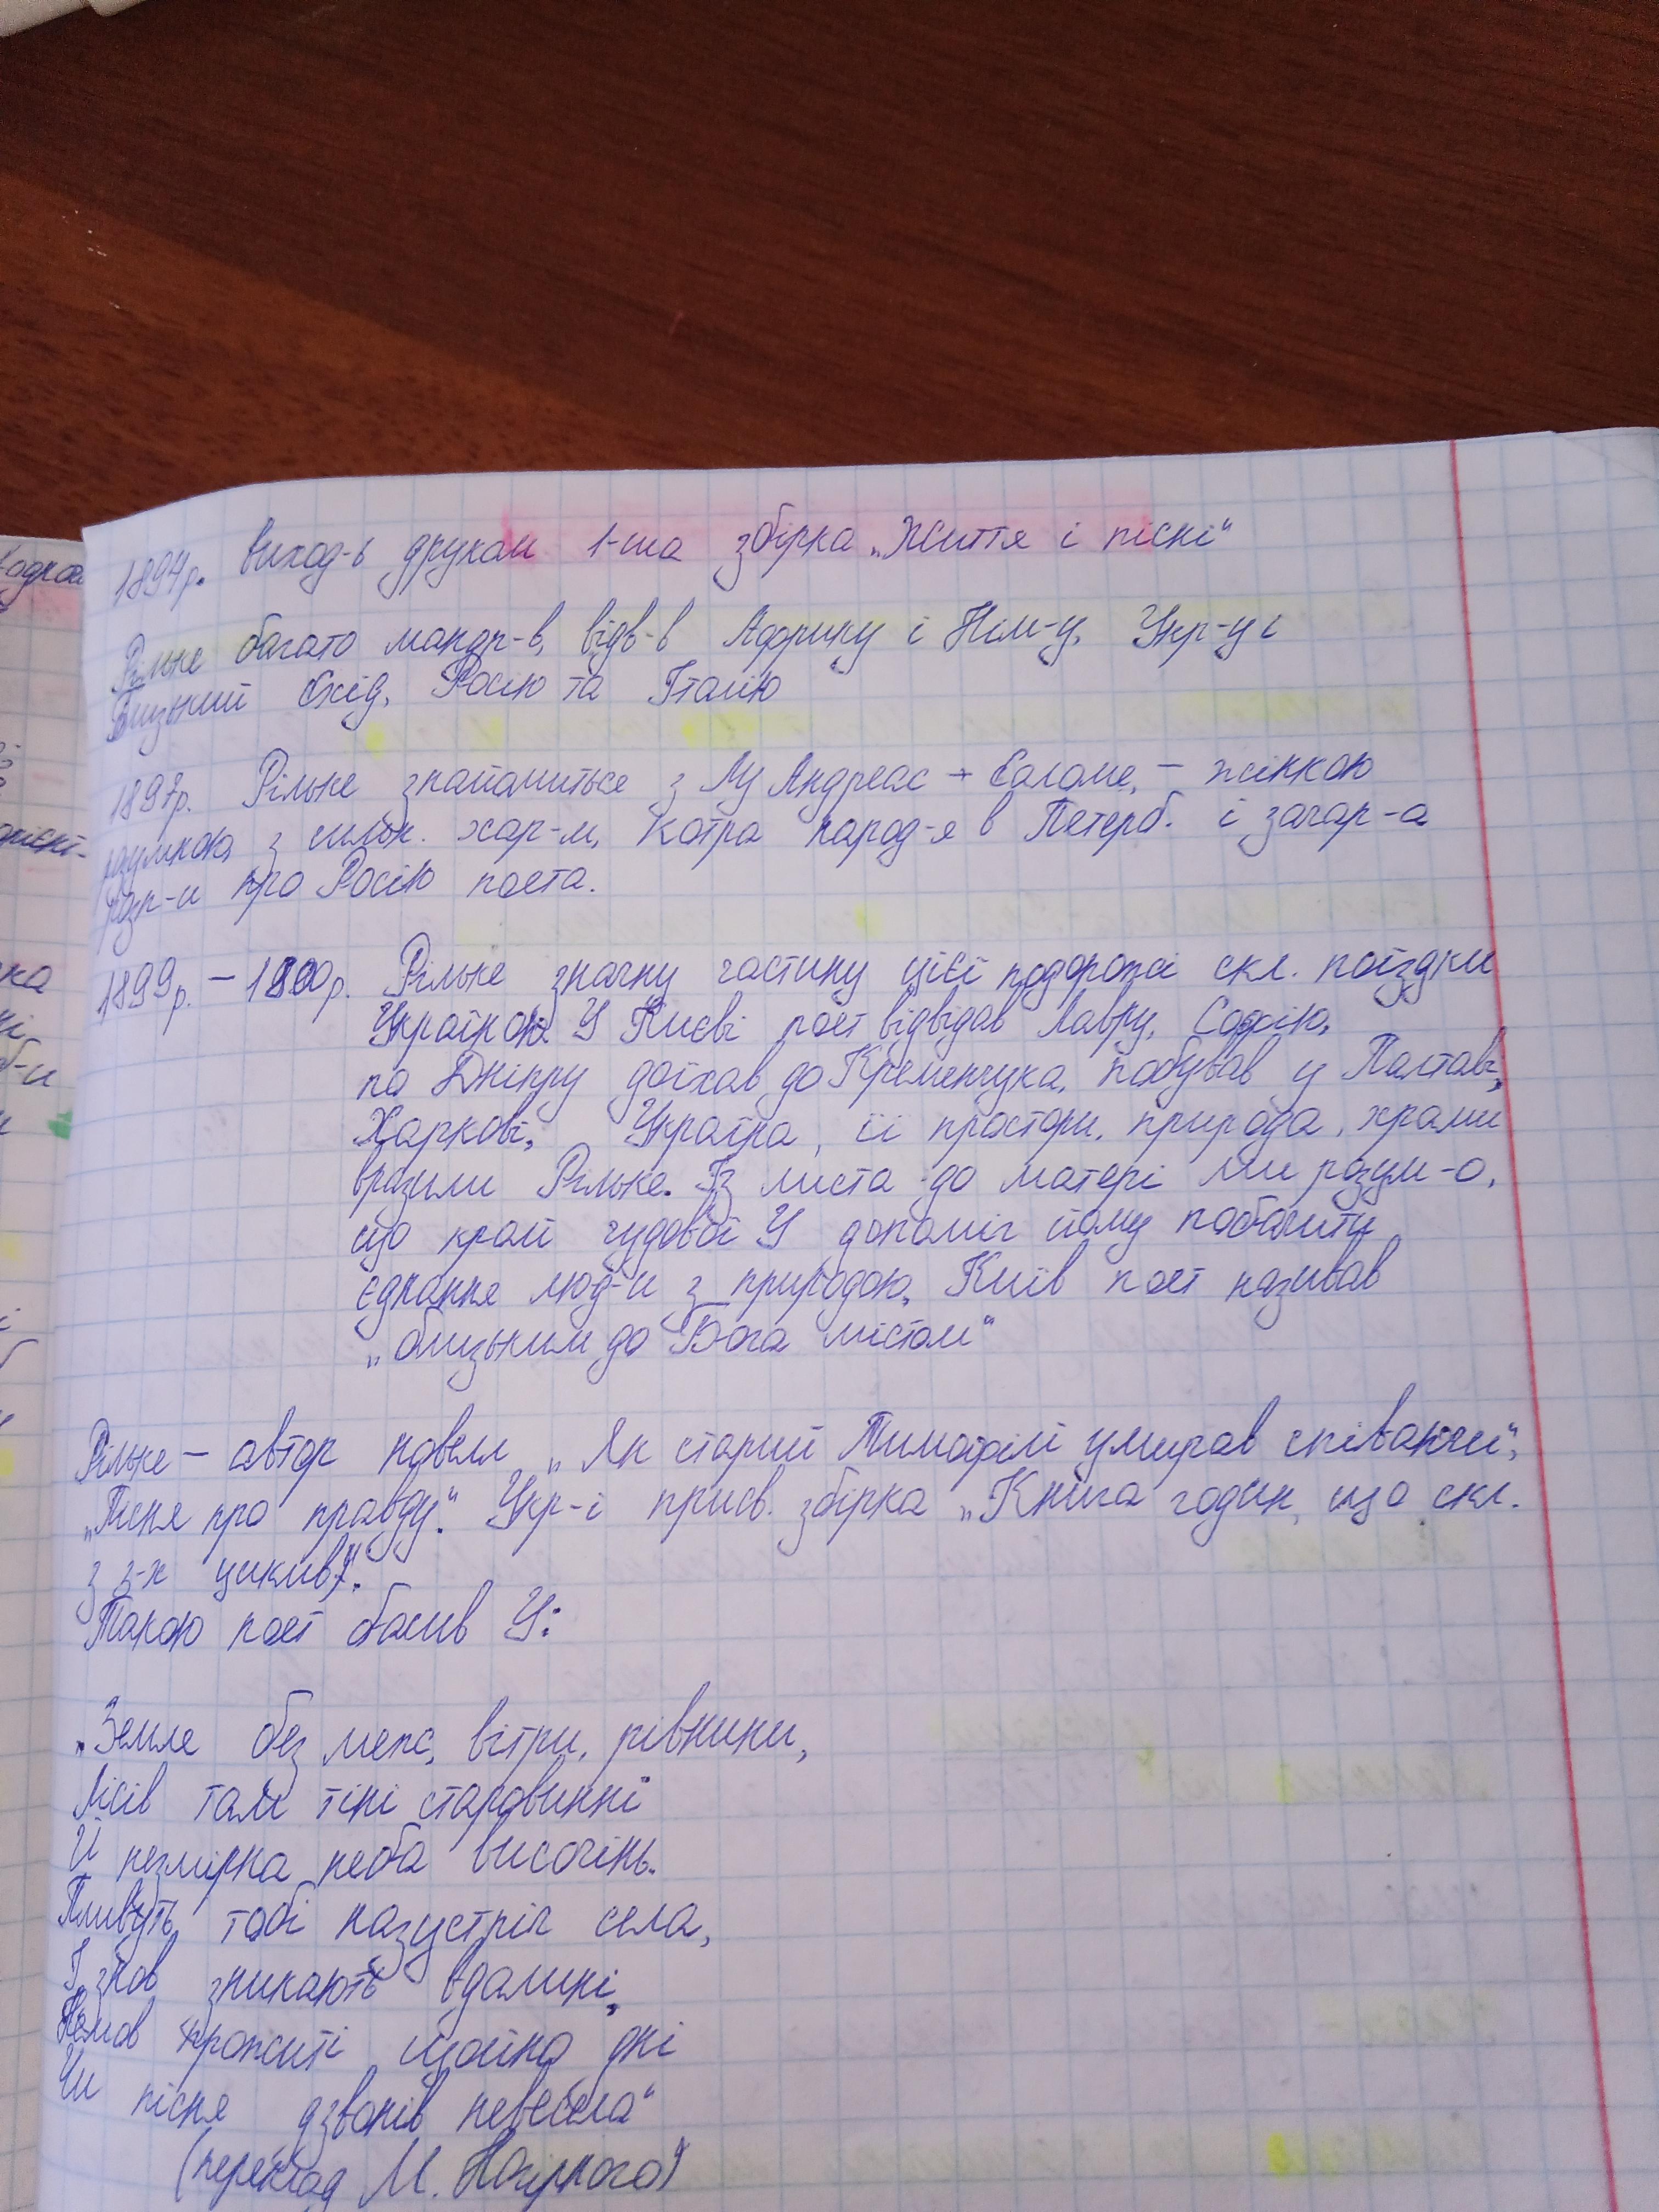 1894р. Виход-ь друком 1-ша збірка „Життя і пісні"
Рільке багато мандр-в, відв-в Африку і Нім-у, Укр-у і
Близький Схід, Росію та Італію
1897р. Рільке знайомиться з Лу Андреас - Саломе, - жінкою
розумною, з сильн. хар-м, котра народ-я в Петерб. і загар-а
розп-и про Росію поета.
1899р. - 1900р. Рільке значну частину цієї подорожі скл. поїздки
Україною. У Києві поет відвідав Лавру, Софію,
по Дніпру доїхав до Кременчука, побував у Полтаві,
Харкові. Україна, її простори, природа, храми
вразили Рільке. Із листа до матері ми розум-о,
що край чудової У допоміг йому побачити
єднання люд-и з природою, Київ поет називав
„близьким до Бога містом"
Рільке - автор новели „Як старий Тимофій умирав співаючи",
„Пісня про правду". Укр-і присв. збірка „Книга годин, що скл.
з 3-х циклів".
Такою поет бачив У:
„Земле без меж, вітри, рівнини,
Лісів там тіні старовинні
Й незмірна неба височінь.
Пливуть тобі назустріч села,
І знов зникають вдалині,
Немов прожиті щойно дні
Чи пісня дзвонів невесела"
(переклад М.
ка
об-и